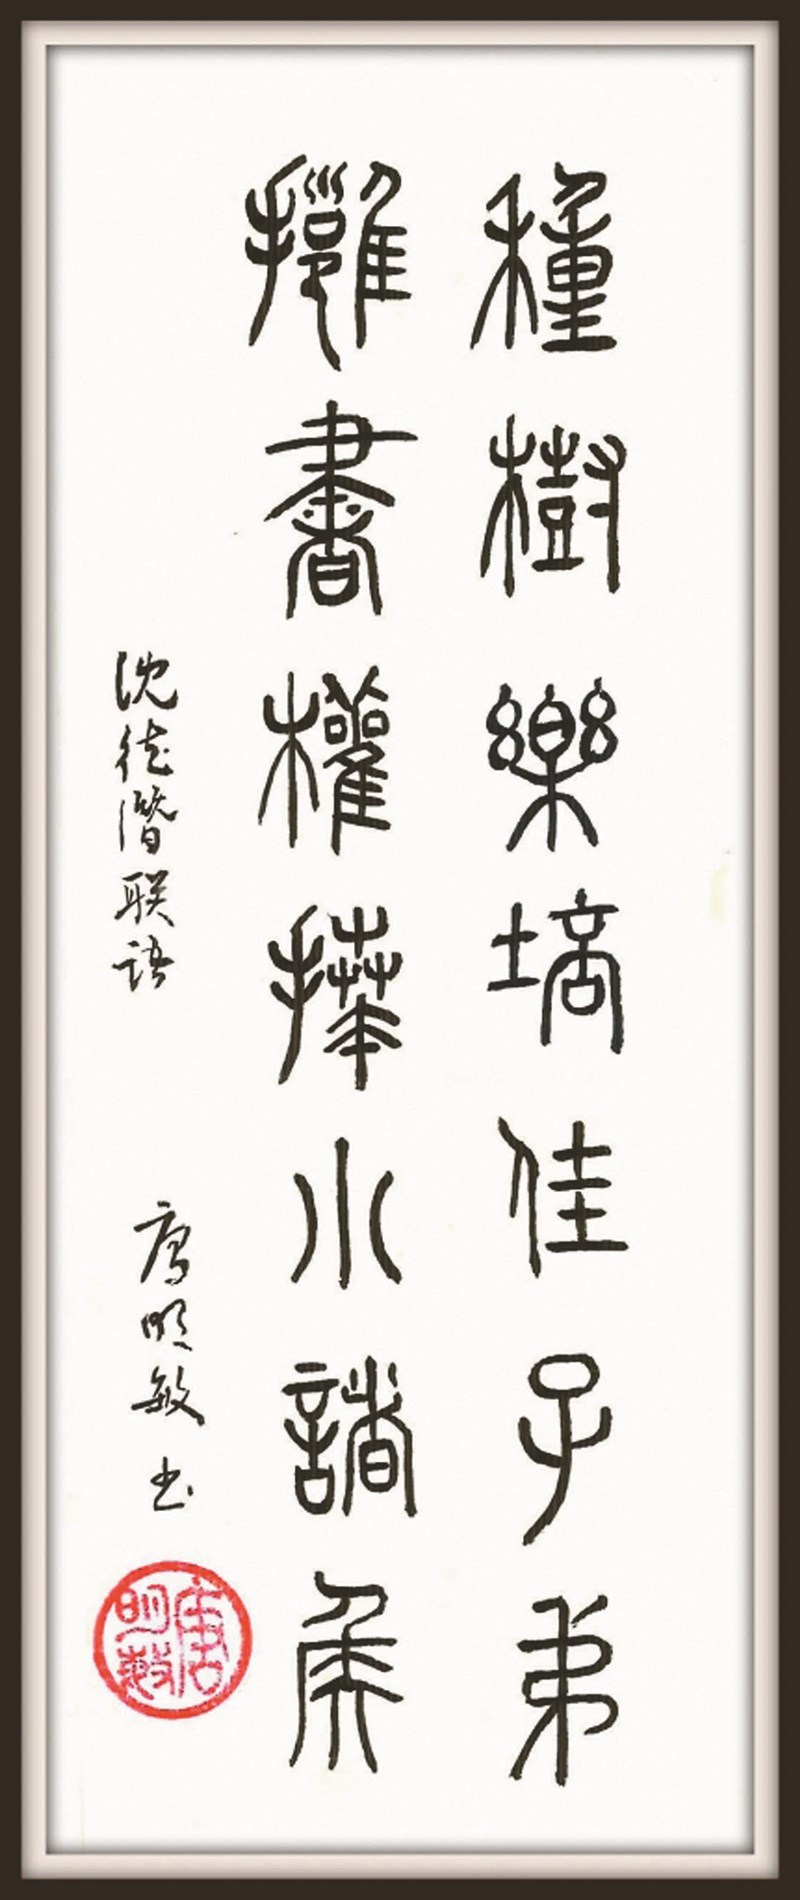 種樹樂培佳子弟
擁書權拜小諸侯
沈德潜联语
唐明敏书
唐明敏